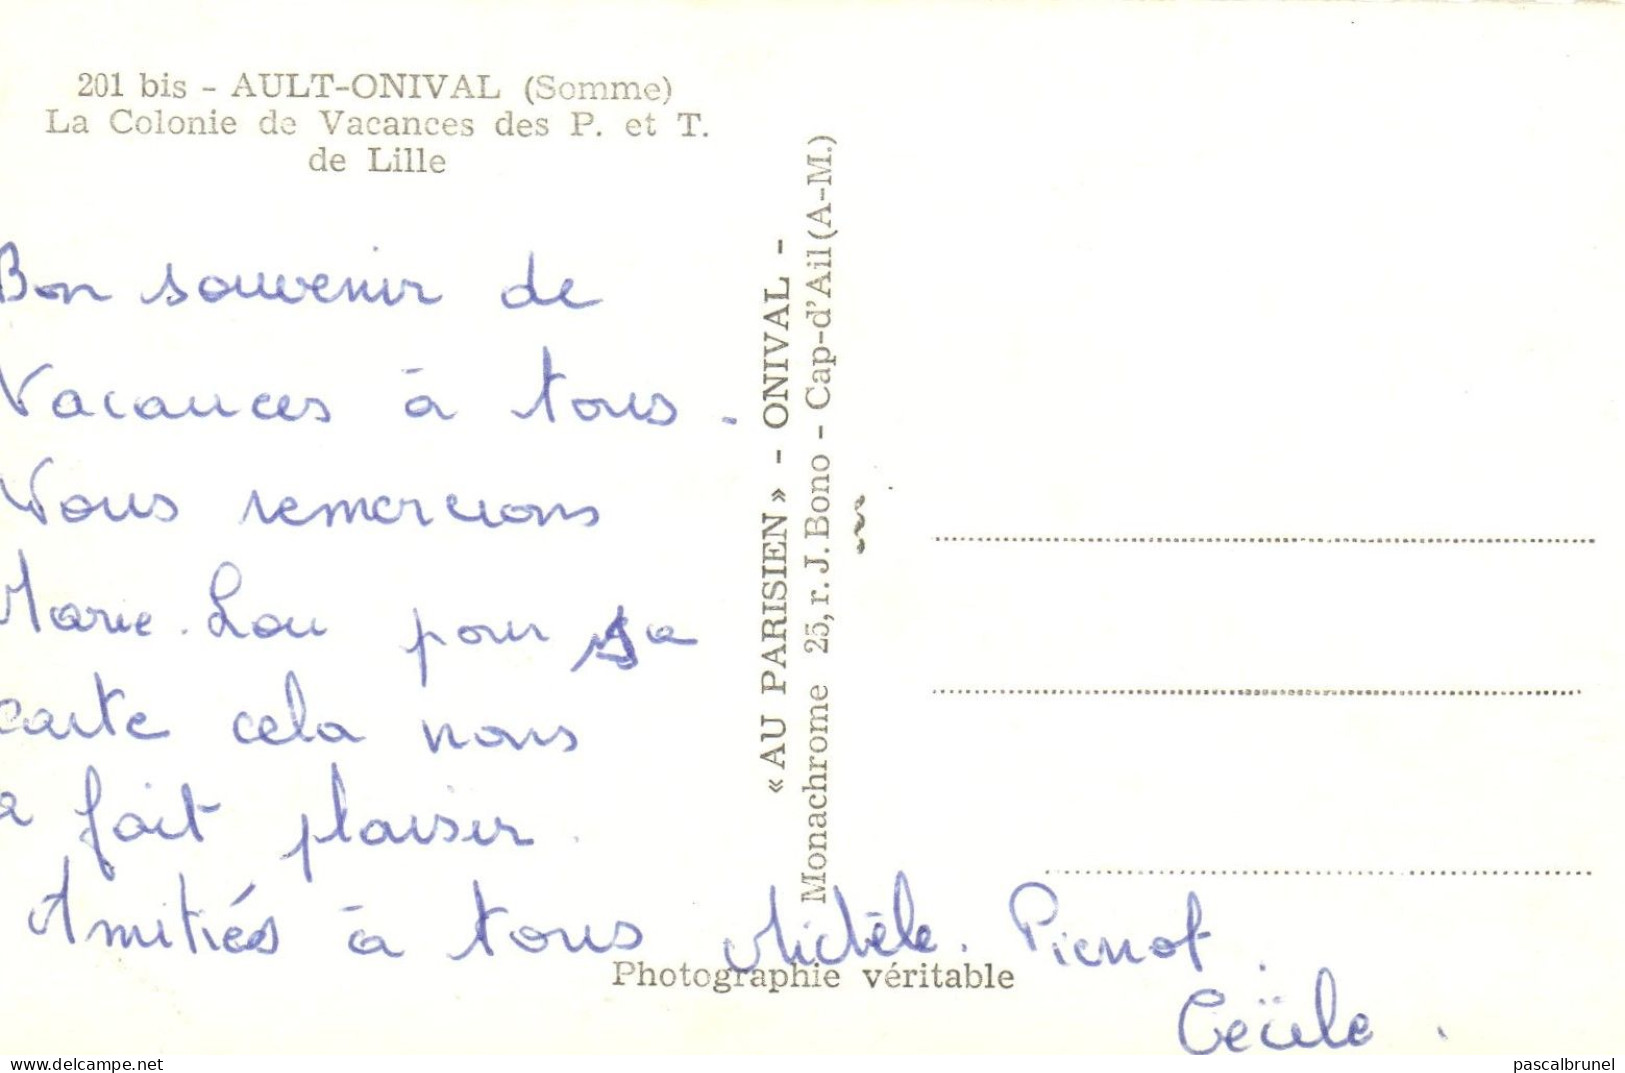 201 bis - AULT-ONIVAL (Somme)
La Colonie de Vacances des P. et T.
de Lille
Bon souvenir de
Vacances à tous.
Vous remercions
Marie-Lou pour sa
carte cela nous
a fait plaisir.
Amitiés à tous Michèle. Pierrot.
Cécile.
« AU PARISIEN » - ONIVAL -
Monachrome 25, r. J. Bono - Cap-d'Ail (A-M.)
Photographie véritable
delcampe.net
pascalbrunel